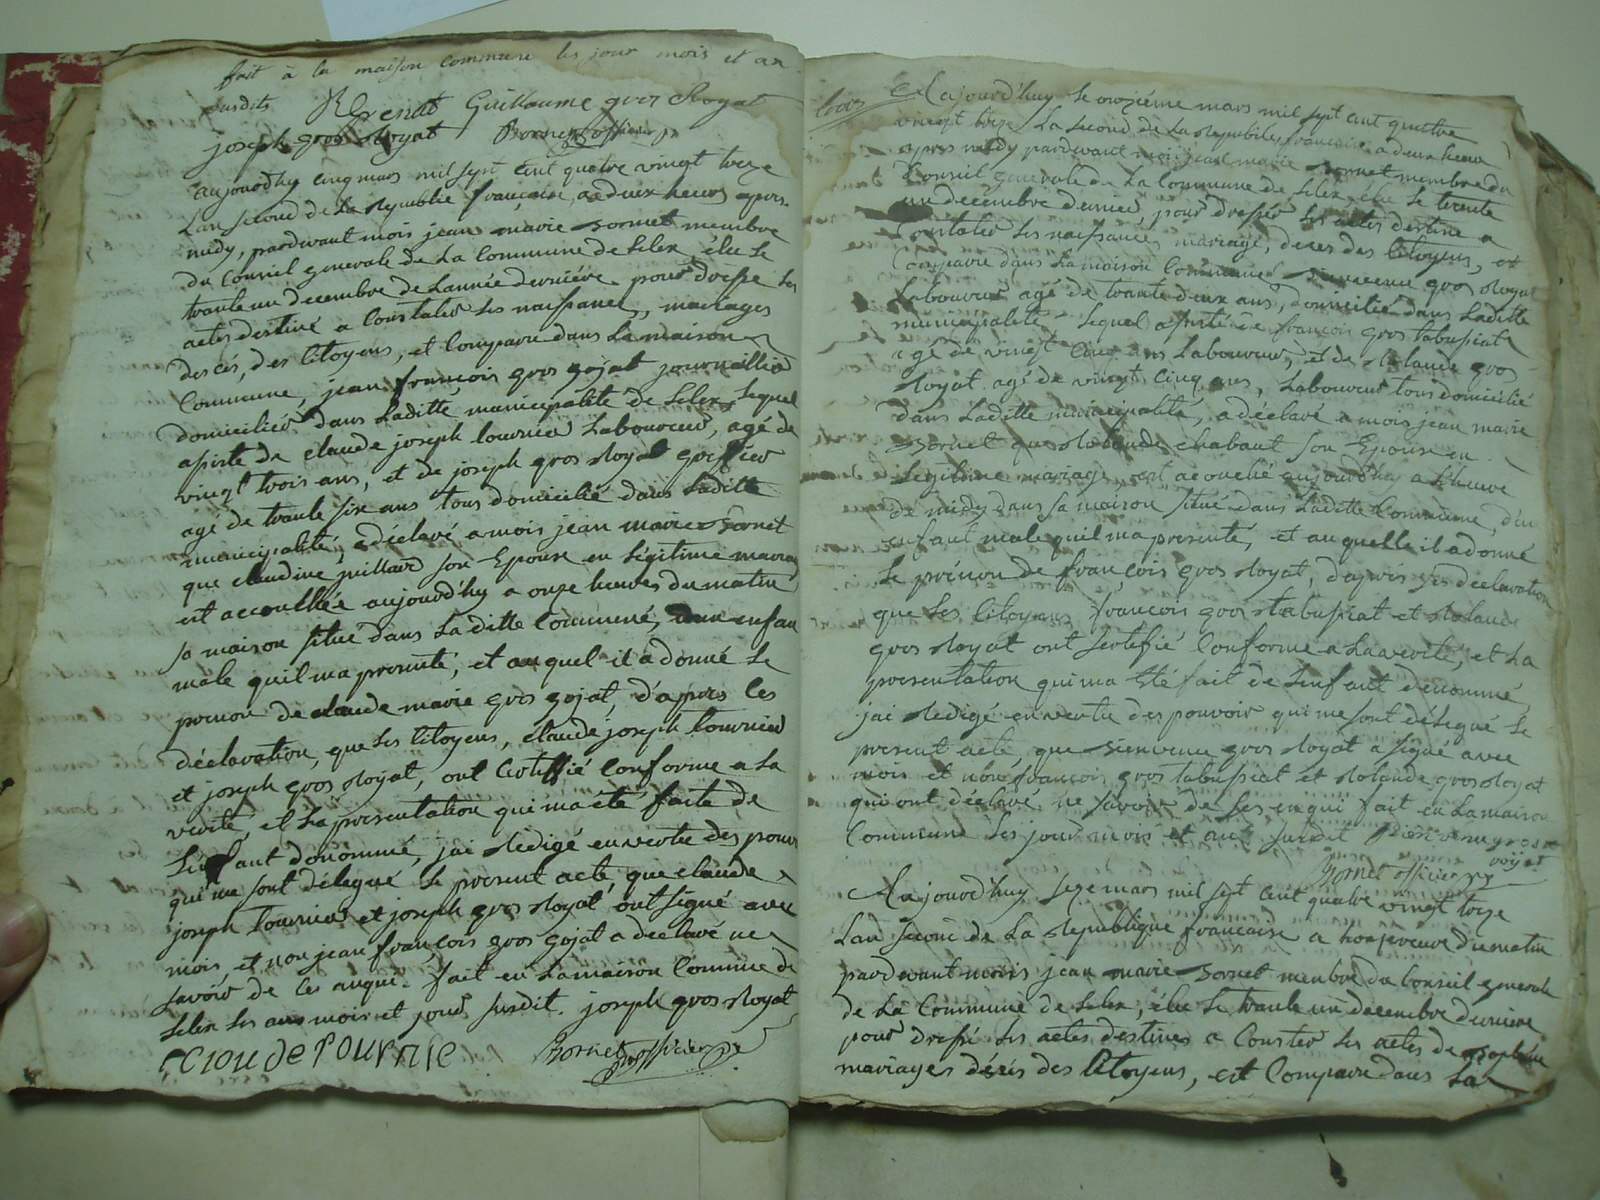 fait à la maison commune les jour mois et an
susdits Guillaume gros Royat
joseph gros Royat Bornet officier
aujourdhuy cinq mars mil sept cent quatre vingt treze
Lan second de La Republie françaisse, a deux heurs apres
midy, pardevant mois jean marie Bornet membre
du Conseil generale de La Commune de Selex élue le
trante un decembre de Lannée derniére pour dresse les
actes destiné a Constater les naissances, mariages
descés, des Citoyens, et Comparu dans La maison
Commune, jean françois gros gojat journallier
domicilier dans Laditte municipalité de Selex, Lequel
asisté de claude joseph tournier Laboureur, agé de
vingt trois ans, et de joseph gros Royat greffier
agé de trante six ans tous domicilié dans Laditte
municipalité, a déclavé a mois jean marie Bornet
que claudine juillard son Epouse en légitime mariag
est accouchée aujourd'huy a onze heures du matin
sa maison situé dans Laditte Commune, dun enfan
male quil ma presenté, et auquel il a donné Le
prenon de claude marie gros gojat, d'apres les
déclaration, que Les Citoyens, claude joseph tournier
et joseph gros Royat, ont Certiffié Conforme a La
verité, et La presentation qui ma été faite de
Lenfant dénommé, jai Redigé en vertu des pouvo
qui me sont délegué Le present acte que claude
joseph tournier et joseph gros Royat ont signé avec
mois, et non jean françois gros gojat a declavé ne
savoir de Ces anqui. fait en La maison Commune de
Selex Les ans mois et jour susdit. joseph gros Royat
Clou de tournie Bornet officier
Aujourd'huy Le onziéme mars mil sept cent quatre
vingt treze La second de La Republique francaise a deux heurs
apres midy pardevant moi jean marie Bornet membre du
Conseil generale de La Commune de Selex élue le trente
un décembre dernier, pour dresser les actes destine a
Constater Les naissances, mariage, deces des Citoyens, et
Comparu dans La maison Commune Bienvenue gros Royat
Laboureur agé de trante deux ans, domicilié dans Laditte
municipalité Lequel asisté de francois gros tabussiat
agé de vingt Cinq ans Laboureur, et de Rolande gros
Royat agé de vingt Cinq ans, Laboureur tous domicilié
dans Laditte municipalité, a déclavé a mois jean marie
Bornet que Rolande chabaut son Epouse en
Legitime mariage est acouché aujourd'huy a Lheure
de midy dans sa maison situé dans Laditte Commune, d'un
enfant male quil ma presenté, et auquelle il a donné
Le prénon de françois gros Royat, daprés Les declaration
que Les Citoyens françois gros tabussiat et Rolande
gros Royat ont sertifié Conforme a La verité, et La
presentation qui ma été fait de Lenfant dénommé,
jai Redigé en vertu des pouvoir qui me sont délegué Le
present acte, que Bienvenue gros Royat a signé avec
mois et non françois gros tabussiat et Rolande gros Royat
qui ont déclavé ne savoir de Les enqui fait en La maison
Commune Les jour mois et an susdit Bienvenue gros
royat
Bornet officier
Aujourd'huy seze mars mil sept cent quatre vingt treze
Lan second de La Republique francaise a honze heure du matin
pardevant moiis jean marie Bornet membre du Conseil generale
de La Commune de Selex, élue Le trante un decembre derniere
pour dressé Les actes destines a Conster Les actes de
mariages désés des Citoyens, est Comparu dans La